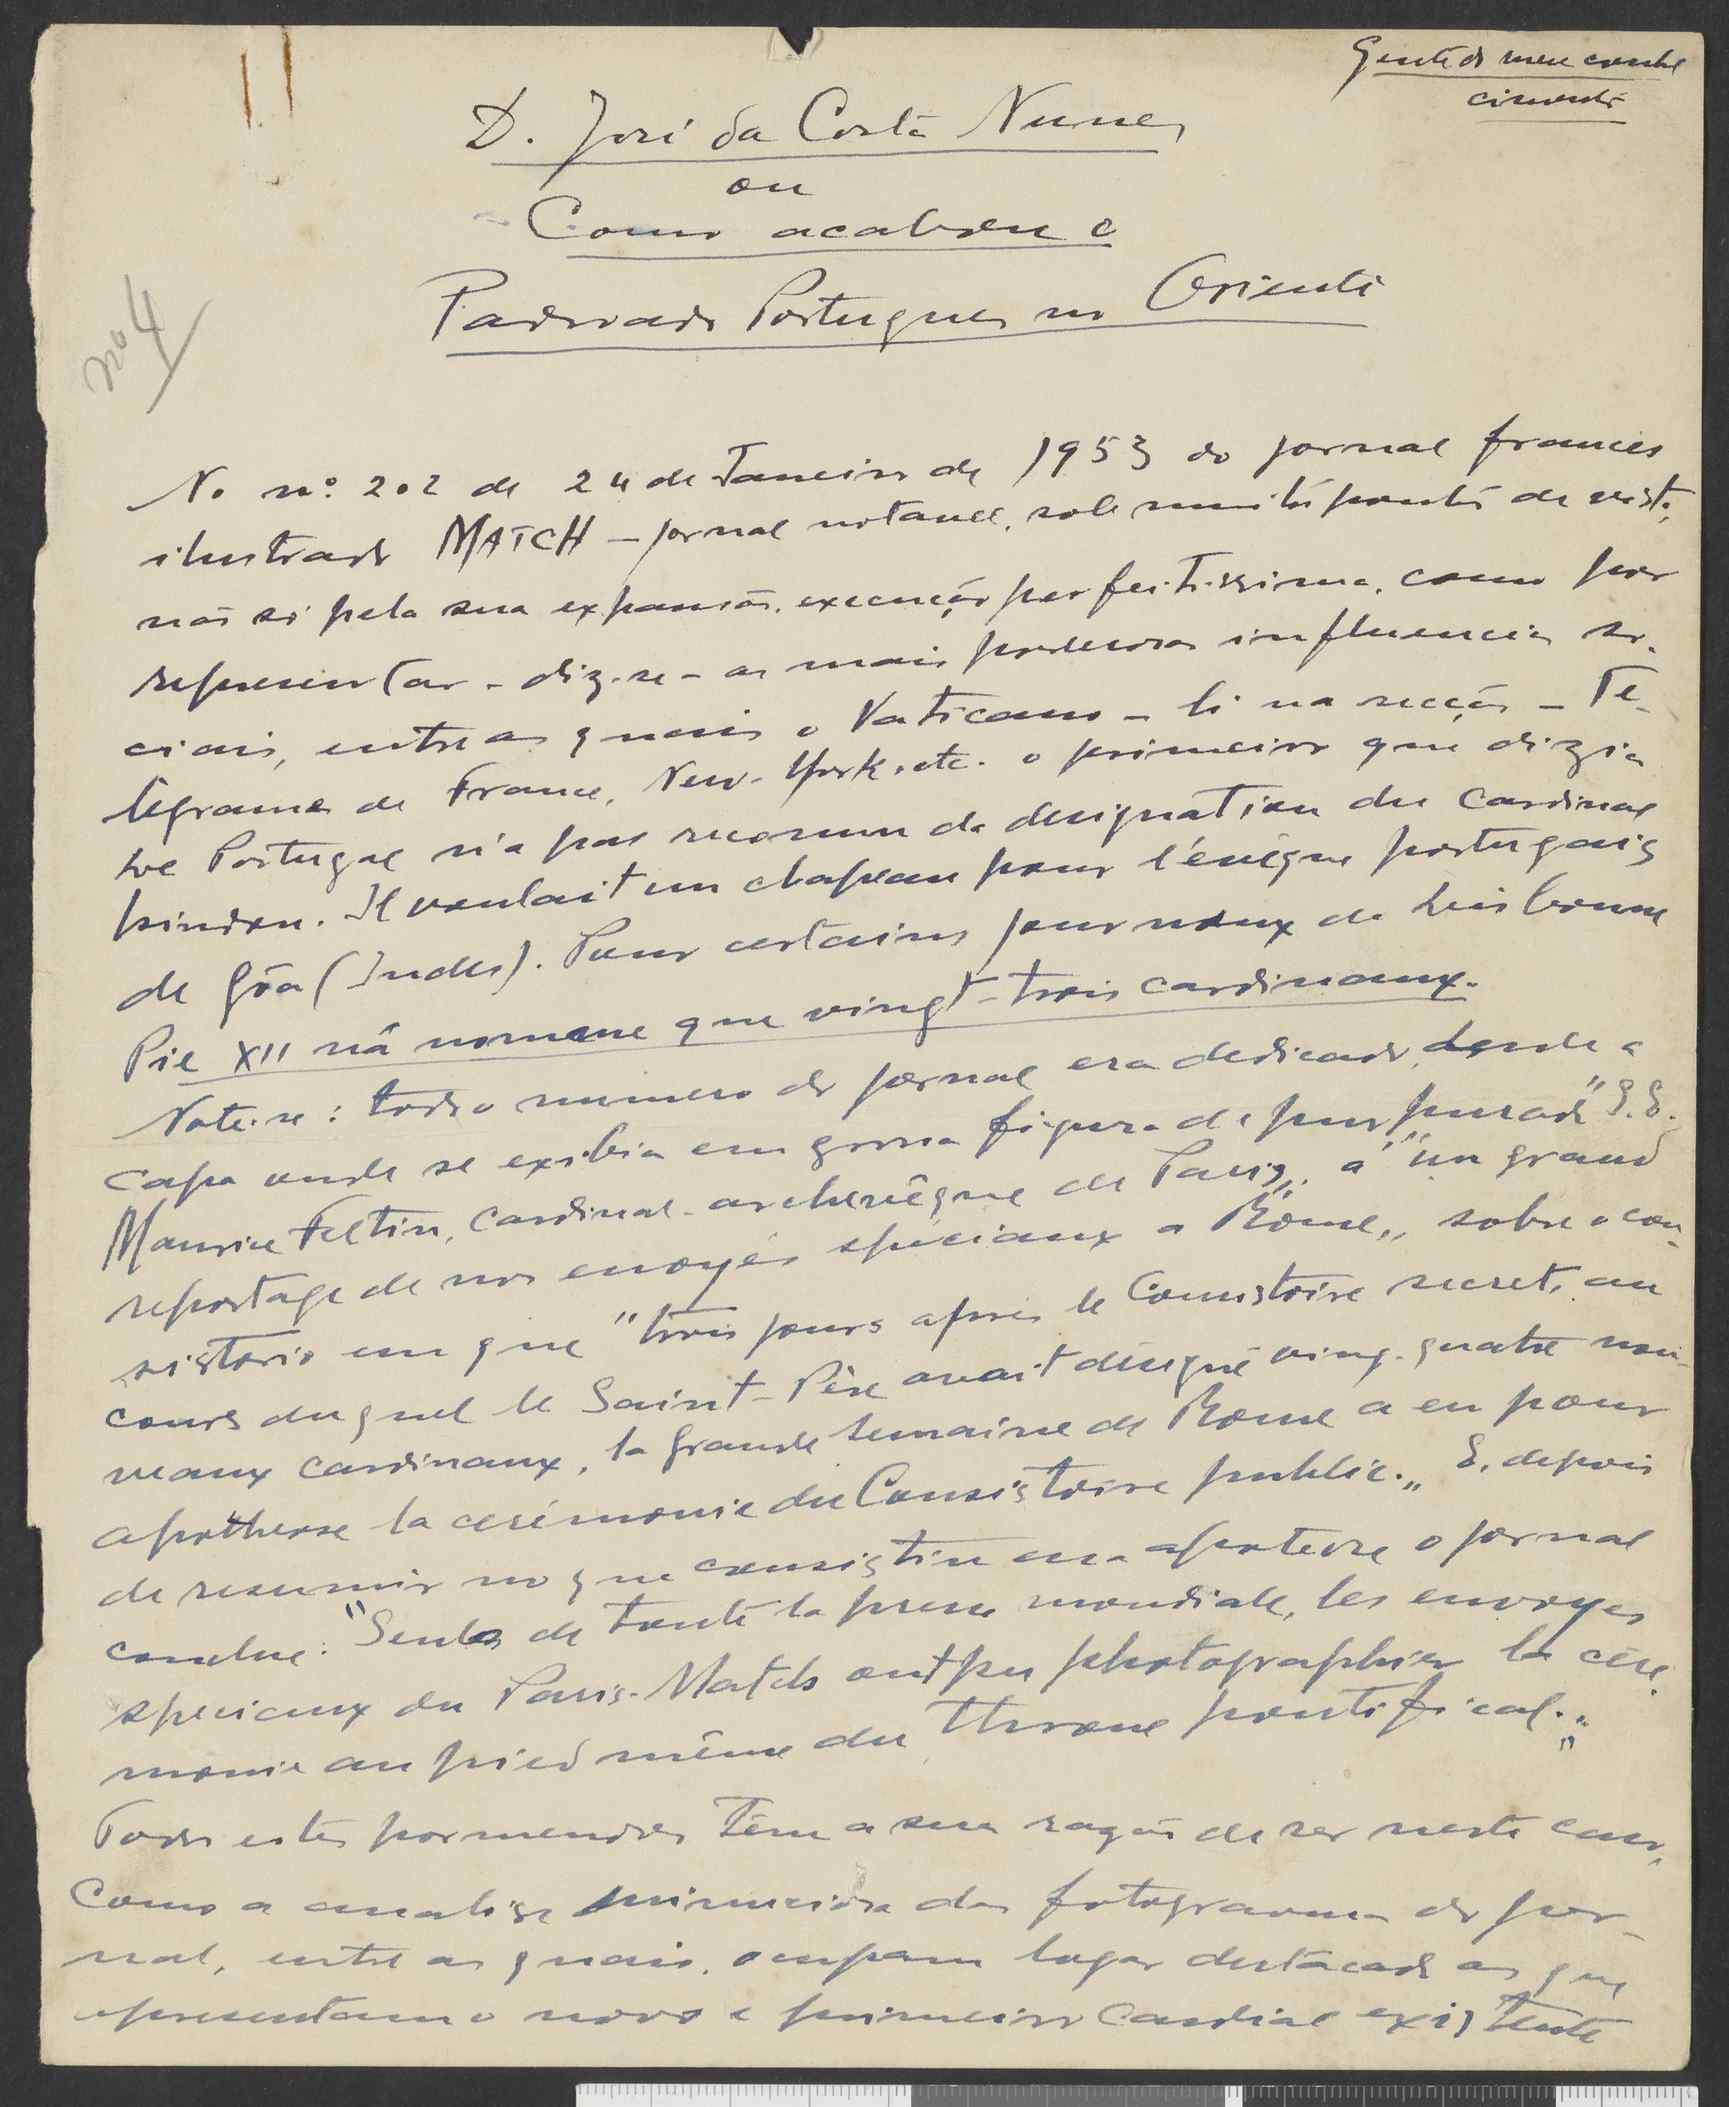 Gente do meu conhe
cimento
D. José da Costa Nunes
ou
Como acabou o
Padroado Português no Oriente
nº 4
No nº 202 de 24 de Janeiro de 1953 do jornal francês
ilustrado MATCH – jornal notavel, sob muitos pontos de vista,
não só pela sua expansão, execução perfeitissima, como por
representar – diz-se – as mais poderosas influencias so-
ciais, entre as quais o Vaticano – li na secção – Te-
legramas de France, New-York, etc. o primeiro que dizia
Le Portugal n'a pas reconnu la designation du Cardinal
hindou. Il voulait un chapeau pour l'évêque portugais
de Gôa (Indes). Pour certains journaux de Lisbonne
Pie XII n'a nommé que vingt-trois cardinaux.
Note-se: todo o numero do jornal era dedicado, desde a
capa onde se exibia em grossa figura de purpurado "S. E.
Maurice Feltin, Cardinal-archevêque de Paris", a "un grand
reportage de nos envoyés spéciaux a Rome", sobre o con-
sistorio em que "trois jours après le Consistoire secret, au
cours duquel le Saint-Père avait désigné vingt-quatre nou-
veaux cardinaux, la grande semaine de Rome a eu pour
apotheose la cerémonie du Consistoire public." E, depois
de resumir no que consistiu essa apoteose o jornal
conclue: "Seuls de toute la presse mondiale, les envoyés
speciaux du Paris-Match ont pu photographier la céré-
monie au pied même du throne pontifical."
Todos estes pormenores têm a sua razão de ser neste caso,
Como a analise minuciosa das fotogravuras do jor-
nal, entre as quais, ocupam lugar destacado as que
apresentam o novo e primeiro Cardial existente